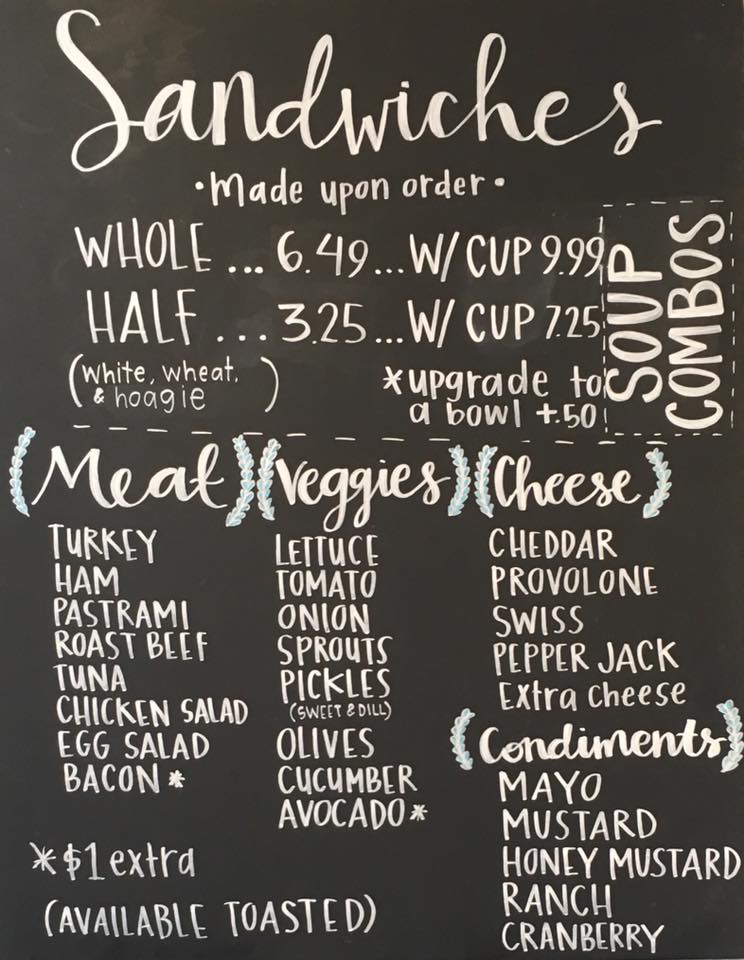 Sandwiches
·Made upon order·
WHOLE ... 6.49 ... W/ CUP 9.99
HALF ... 3.25 ... W/ CUP 7.25
SOUP
COMBOS
(white, wheat,
& hoagie)
*upgrade to
a bowl +.50
Meat
TURKEY
HAM
PASTRAMI
ROAST BEEF
TUNA
CHICKEN SALAD
EGG SALAD
BACON *
Veggies
LETTUCE
TOMATO
ONION
SPROUTS
PICKLES
(SWEET & DILL)
OLIVES
CUCUMBER
AVOCADO *
Cheese
CHEDDAR
PROVOLONE
SWISS
PEPPER JACK
Extra cheese
Condiments
MAYO
MUSTARD
HONEY MUSTARD
RANCH
CRANBERRY
*$1 extra
(AVAILABLE TOASTED)